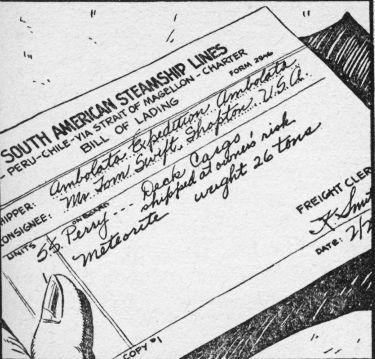 SOUTH AMERICAN STEAMSHIP LINES
PERU-CHILE-VIA STRAIT OF MAGELLON-CHARTER
BILL OF LADING
FORM 2946
HIPPER: Ambolata Expedition Ambolata
ONSIGNEE: Mr. Tom Swift. Shopton. U.S.A.
UNITS
ON BOARD
S.S. Perry --- Deck Cargo
shipped at owner's risk
Meteorite weight 26 tons
FREIGHT CLER
K Smit
DATE: 2/2
COPY #1